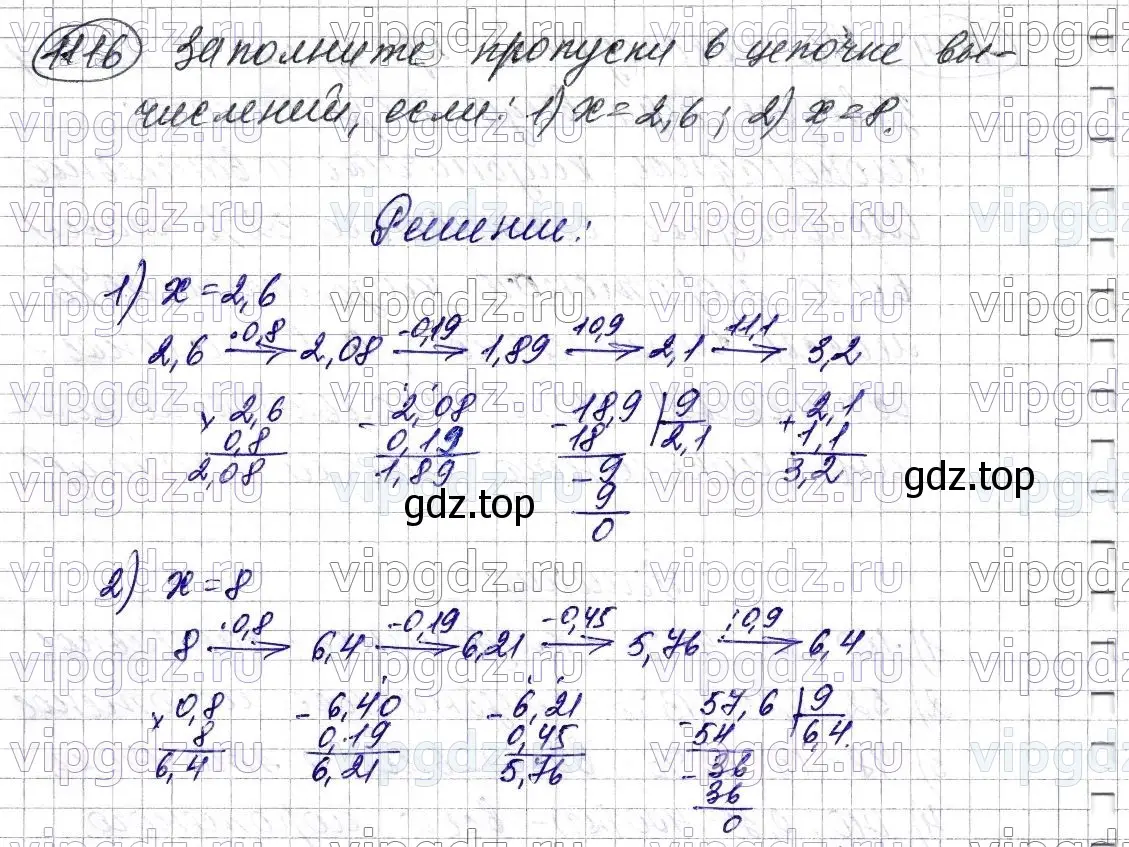 1116 Заполните пропуски в цепочке вы-
числений, если: 1) x=2,6; 2) x=8.
Решение:
1) x=2,6
2,6 ·0,8→ 2,08 -0,19→ 1,89 :0,9→ 2,1 +1,1→ 3,2
×2,6 -2,08 -18,9 |9 +2,1
0,8 0,19 18 2,1 1,1
2,08 1,89 -9 3,2
9
0
gdz.top gdz.top
2) x=8
8 ·0,8→ 6,4 -0,19→ 6,21 -0,45→ 5,76 :0,9→ 6,4
×0,8 -6,40 -6,21 -57,6 |9
8 0,19 0,45 54 6,4.
6,4 6,21 5,76 -36
36
0
vipgdz.ru